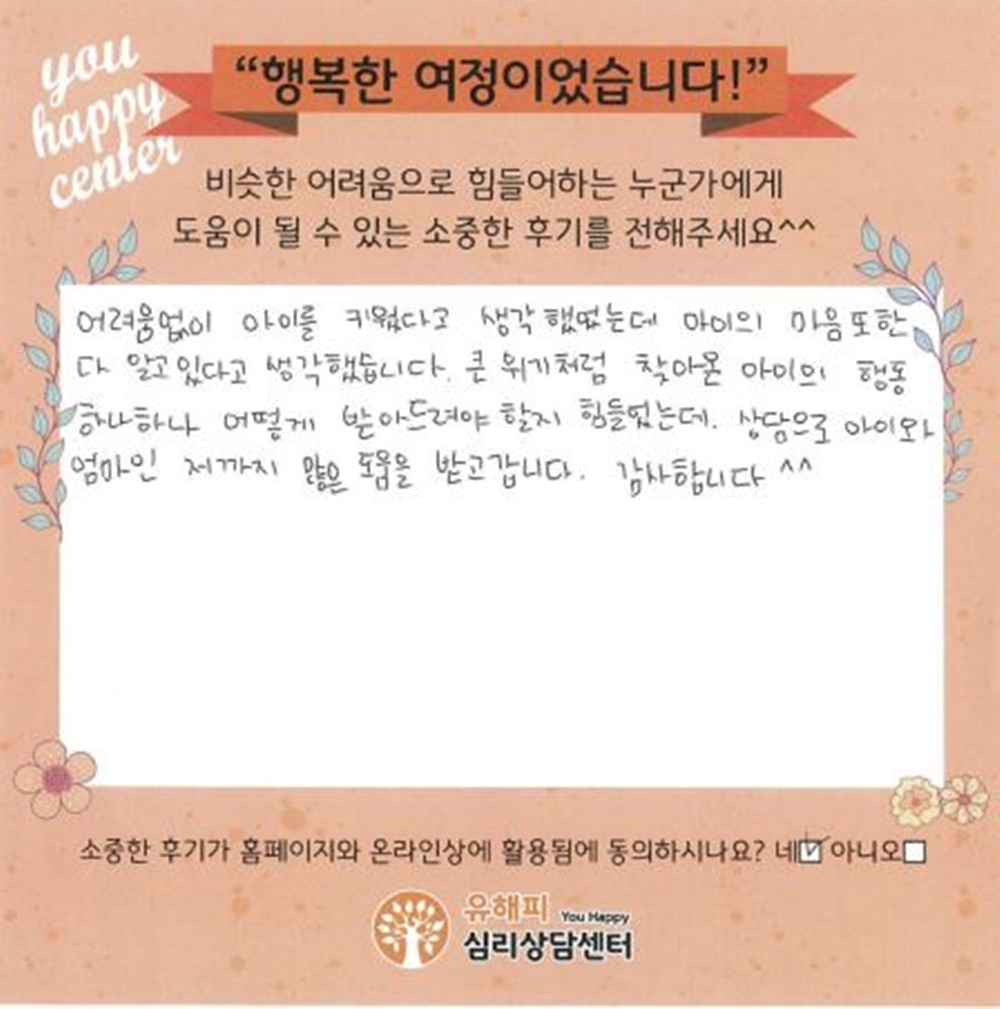 you
happy
center
“행복한 여정이었습니다!”
비슷한 어려움으로 힘들어하는 누군가에게
도움이 될 수 있는 소중한 후기를 전해주세요^^
어려움없이 아이를 키웠다고 생각했었는데 아이의 마음또한
다 알고있다고 생각했습니다. 큰 위기처럼 찾아온 아이의 행동
하나하나 어떻게 받아드려야 할지 힘들었는데. 상담으로 아이와
엄마인 저까지 많은 도움을 받고갑니다. 감사합니다 ^^
소중한 후기가 홈페이지와 온라인상에 활용됨에 동의하시나요? 네☑ 아니오☐
유해피 You Happy
심리상담센터